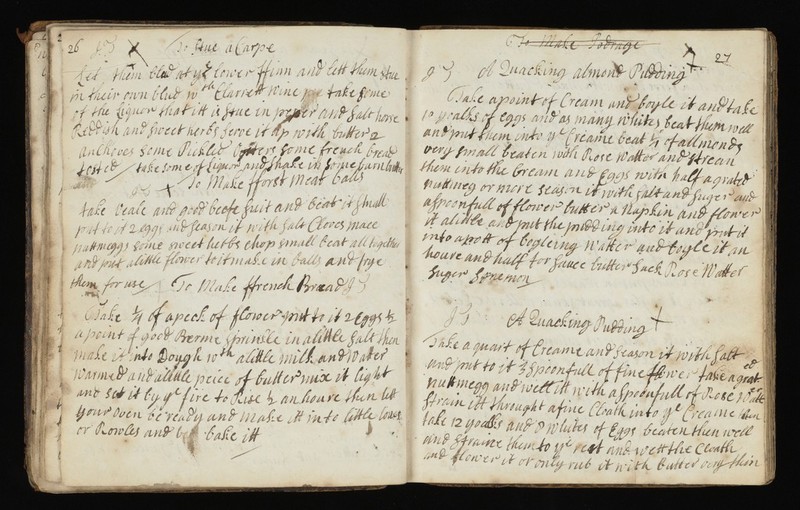 26
To stue a Carpe
Lett them bled at ye lower ffinn and lett them stue
in their own blud wth Clarrett wine yn take some
of the liquor that itt is stue in pepper and salt horse
Reddish and sweet herbs serve it up with butter 2
anchoves some Pickled oysters some french bread
tosted / take some of liquor and shake in some burn butter
To Make fforst meat balls
take Veale and good beefe suit and beat it small
put to it 2 eggs and season it with salt Cloves mace
nuttmeggs some sweet herbs chop small beat all together
and put alittle flower to it make in balls and frye
them for use / To Make ffrench Bread
Take ¼ of a peck of flower put to it 2 Eggs ½
a point of good Berme sprinkle in alittle salt then
make it into Dough wth alittle milk and Water
warmed and alittle peice of butter mix it light
and set it by ye fire to Rise ½ an houre then lett
your oven be ready and make itt into little loves
or Rowles and bake itt
To Make
27
A Quacking almond Pudding
Take a point of Cream and boyle it and take
10 yoalks of eggs and as many whites beat them well
and put them into ye Creame beat ¼ of allmonds
very small beaten with Rose Watter and strean
them into the Cream and Eggs with half a grated
nuttmeg or more season it with salt and suger and
a spoonfull of flower butter a Napkin and flower
it alittle and put the pudding into it and put it
into a pott of boyleing Watter and boyle it an
houre and half for sauce butter sack Rose Watter
suger
A Quacking Pudding
Take a quart of Creame and season it with salt
and put to it 3 spoonfull of fine flower take a grated
nuttmegg and wett itt with a spoonfull of Rose Watter
strain itt throught a fine Cloath into ye Creame then
take 12 yoalks and 8 whites of Eggs beaten then well
and straine them to ye rest and wett the Cloath
and flower it or only rub it with butter very thin